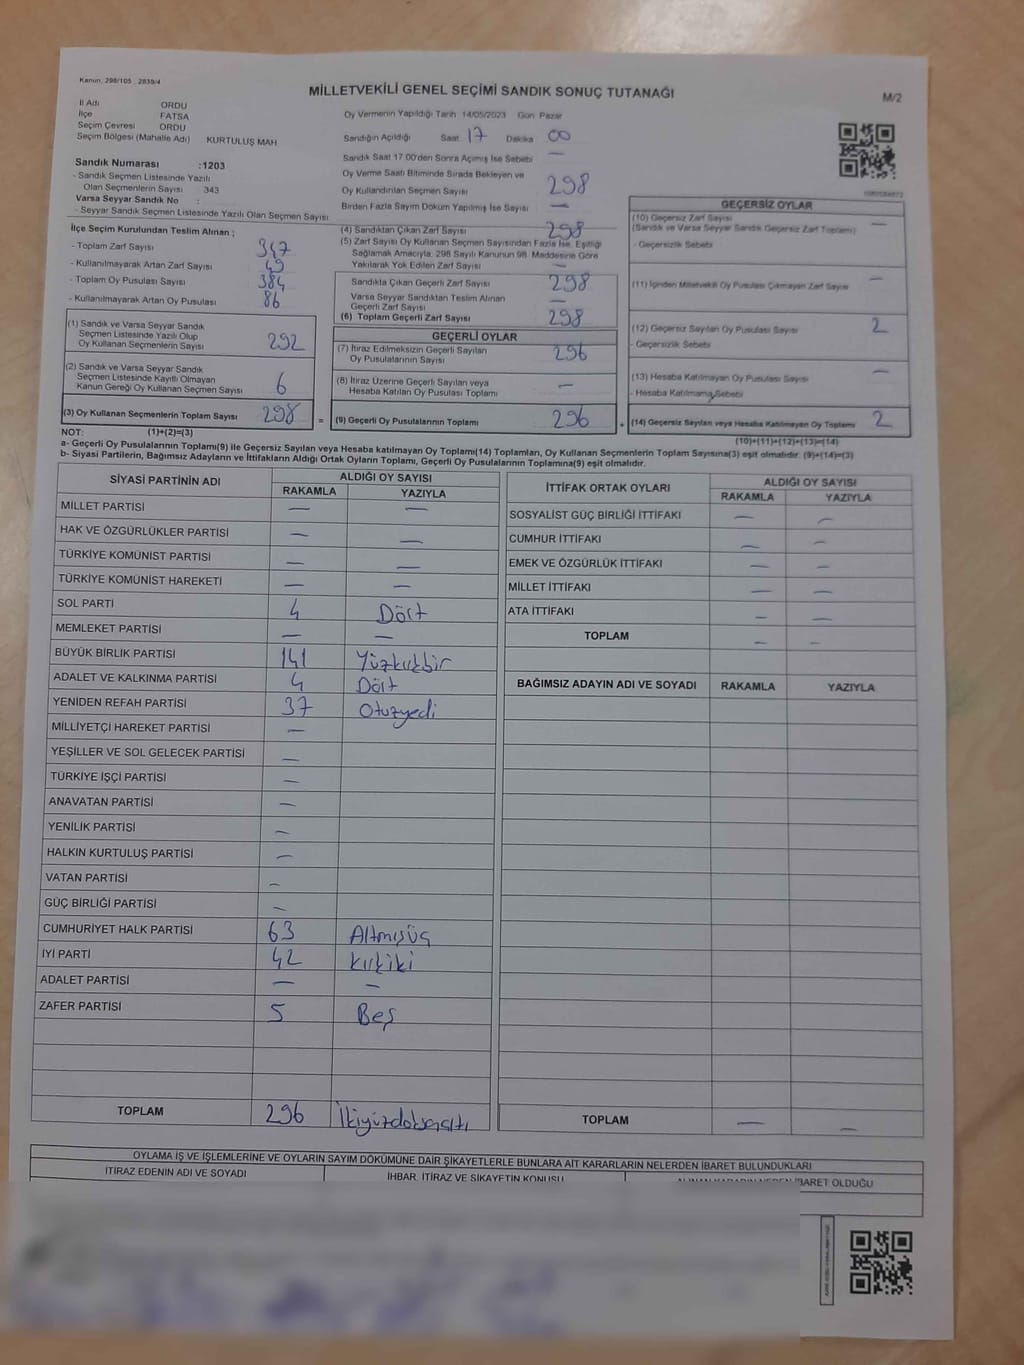 Kanun, 298/105 , 2839/4
MİLLETVEKİLİ GENEL SEÇİMİ SANDIK SONUÇ TUTANAĞI
M/2
İl Adı ORDU
İlçe FATSA
Seçim Çevresi ORDU
Seçim Bölgesi (Mahalle Adı) KURTULUŞ MAH
Sandık Numarası :1203
- Sandık Seçmen Listesinde Yazılı
Olan Seçmenlerin Sayısı : 343
Varsa Seyyar Sandık No :
- Seyyar Sandık Seçmen Listesinde Yazılı Olan Seçmen Sayısı
Oy Vermenin Yapıldığı Tarih 14/05/2023 Gün Pazar
Sandığın Açıldığı Saat 17 Dakika 00
Sandık Saat 17.00'den Sonra Açımış İse Sebebi —
Oy Verme Saati Bitiminde Sırada Bekleyen ve
Oy Kullandırılan Seçmen Sayısı 298
Birden Fazla Sayım Döküm Yapılmış İse Sayısı —
İlçe Seçim Kurulundan Teslim Alınan ;
- Toplam Zarf Sayısı 347
- Kullanılmayarak Artan Zarf Sayısı 49
- Toplam Oy Pusulası Sayısı 384
- Kullanılmayarak Artan Oy Pusulası 86
(1) Sandık ve Varsa Seyyar Sandık
Seçmen Listesinde Yazılı Olup
Oy Kullanan Seçmenlerin Sayısı 292
(2) Sandık ve Varsa Seyyar Sandık
Seçmen Listesinde Kayıtlı Olmayan
Kanun Gereği Oy Kullanan Seçmen Sayısı 6
(3) Oy Kullanan Seçmenlerin Toplam Sayısı 298 =
(4) Sandıktan Çıkan Zarf Sayısı 298
(5) Zarf Sayısı Oy Kullanan Seçmen Sayısından Fazla İse, Eşitliği
Sağlamak Amacıyla; 298 Sayılı Kanunun 98. Maddesine Göre
Yakılarak Yok Edilen Zarf Sayısı —
Sandıkta Çıkan Geçerli Zarf Sayısı 298
Varsa Seyyar Sandıktan Teslim Alınan
Geçerli Zarf Sayısı —
(6) Toplam Geçerli Zarf Sayısı 298
GEÇERLİ OYLAR
(7) İtiraz Edilmeksizin Geçerli Sayılan
Oy Pusulalarının Sayısı 296
(8) İtiraz Üzerine Geçerli Sayılan veya
Hesaba Katılan Oy Pusulaları Toplamı —
(9) Geçerli Oy Pusulalarının Toplamı 296 +
GEÇERSİZ OYLAR
(10) Geçersiz Zarf Sayısı —
(Sandık ve Varsa Seyyar Sandık Geçersiz Zarf Toplamı)
- Geçersizlik Sebebi
(11) İçinden Milletvekili Oy Pusulası Çıkmayan Zarf Sayısı —
(12) Geçersiz Sayılan Oy Pusulası Sayısı 2
- Geçersizlik Sebebi
(13) Hesaba Katılmayan Oy Pusulası Sayısı —
- Hesaba Katılmama Sebebi
(14) Geçersiz Sayılan veya Hesaba Katılmayan Oy Toplamı 2
NOT: (1)+(2)=(3)
(10)+(11)+(12)+(13)=(14)
a- Geçerli Oy Pusulalarının Toplamı(9) ile Geçersiz Sayılan veya Hesaba katılmayan Oy Toplamı(14) Toplamları, Oy Kullanan Seçmenlerin Toplam Sayısına(3) eşit olmalıdır. (9)+(14)=(3)
b- Siyasi Partilerin, Bağımsız Adayların ve İttifakların Aldığı Ortak Oyların Toplamı, Geçerli Oy Pusulalarının Toplamına(9) eşit olmalıdır.
SİYASİ PARTİNİN ADI ALDIĞI OY SAYISI
RAKAMLA YAZIYLA
MİLLET PARTİSİ — —
HAK VE ÖZGÜRLÜKLER PARTİSİ — —
TÜRKİYE KOMÜNİST PARTİSİ — —
TÜRKİYE KOMÜNİST HAREKETİ — —
SOL PARTİ 4 Dört
MEMLEKET PARTİSİ — —
BÜYÜK BİRLİK PARTİSİ 141 Yüzkırkbir
ADALET VE KALKINMA PARTİSİ 4 Dört
YENİDEN REFAH PARTİSİ 37 Otuzyedi
MİLLİYETÇİ HAREKET PARTİSİ —
YEŞİLLER VE SOL GELECEK PARTİSİ —
TÜRKİYE İŞÇİ PARTİSİ —
ANAVATAN PARTİSİ —
YENİLİK PARTİSİ —
HALKIN KURTULUŞ PARTİSİ —
VATAN PARTİSİ —
GÜÇ BİRLİĞİ PARTİSİ —
CUMHURİYET HALK PARTİSİ 63 Altmışüç
İYİ PARTİ 42 Kırkiki
ADALET PARTİSİ — —
ZAFER PARTİSİ 5 Beş
TOPLAM 296 İkiyüzdoksanaltı
İTTİFAK ORTAK OYLARI ALDIĞI OY SAYISI
RAKAMLA YAZIYLA
SOSYALİST GÜÇ BİRLİĞİ İTTİFAKI — —
CUMHUR İTTİFAKI — —
EMEK VE ÖZGÜRLÜK İTTİFAKI — —
MİLLET İTTİFAKI — —
ATA İTTİFAKI — —
TOPLAM — —
BAĞIMSIZ ADAYIN ADI VE SOYADI RAKAMLA YAZIYLA
TOPLAM — —
OYLAMA İŞ VE İŞLEMLERİNE VE OYLARIN SAYIM DÖKÜMÜNE DAİR ŞİKAYETLERLE BUNLARA AİT KARARLARIN NELERDEN İBARET BULUNDUKLARI
İTİRAZ EDENİN ADI VE SOYADI İHBAR, İTİRAZ VE ŞİKAYETİN KONUSU ALINAN KARARIN NEDEN İBARET OLDUĞU